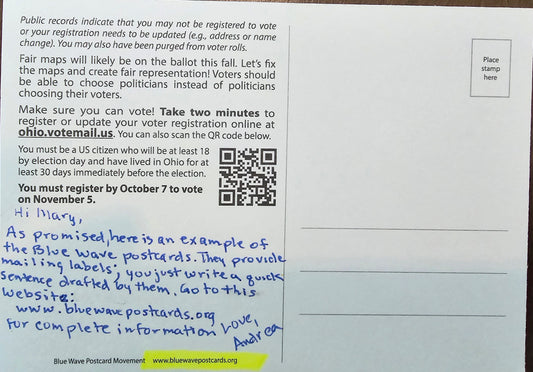 Public records indicate that you may not be registered to vote
or your registration needs to be updated (e.g., address or name
change). You may also have been purged from voter rolls.
Fair maps will likely be on the ballot this fall. Let's fix
the maps and create fair representation! Voters should
be able to choose politicians instead of politicians
choosing their voters.
Make sure you can vote! Take two minutes to
register or update your voter registration online at
ohio.votemail.us. You can also scan the QR code below.
You must be a US citizen who will be at least 18
by election day and have lived in Ohio for at
least 30 days immediately before the election.
You must register by October 7 to vote
on November 5.
Hi Mary,
As promised, here is an example of
the Blue Wave postcards. They provide
mailing labels; you just write a quick
sentence drafted by them. Go to this
website:
www.bluewavepostcards.org
for complete information Love,
Andrea
Blue Wave Postcard Movement www.bluewavepostcards.org
Place
stamp
here